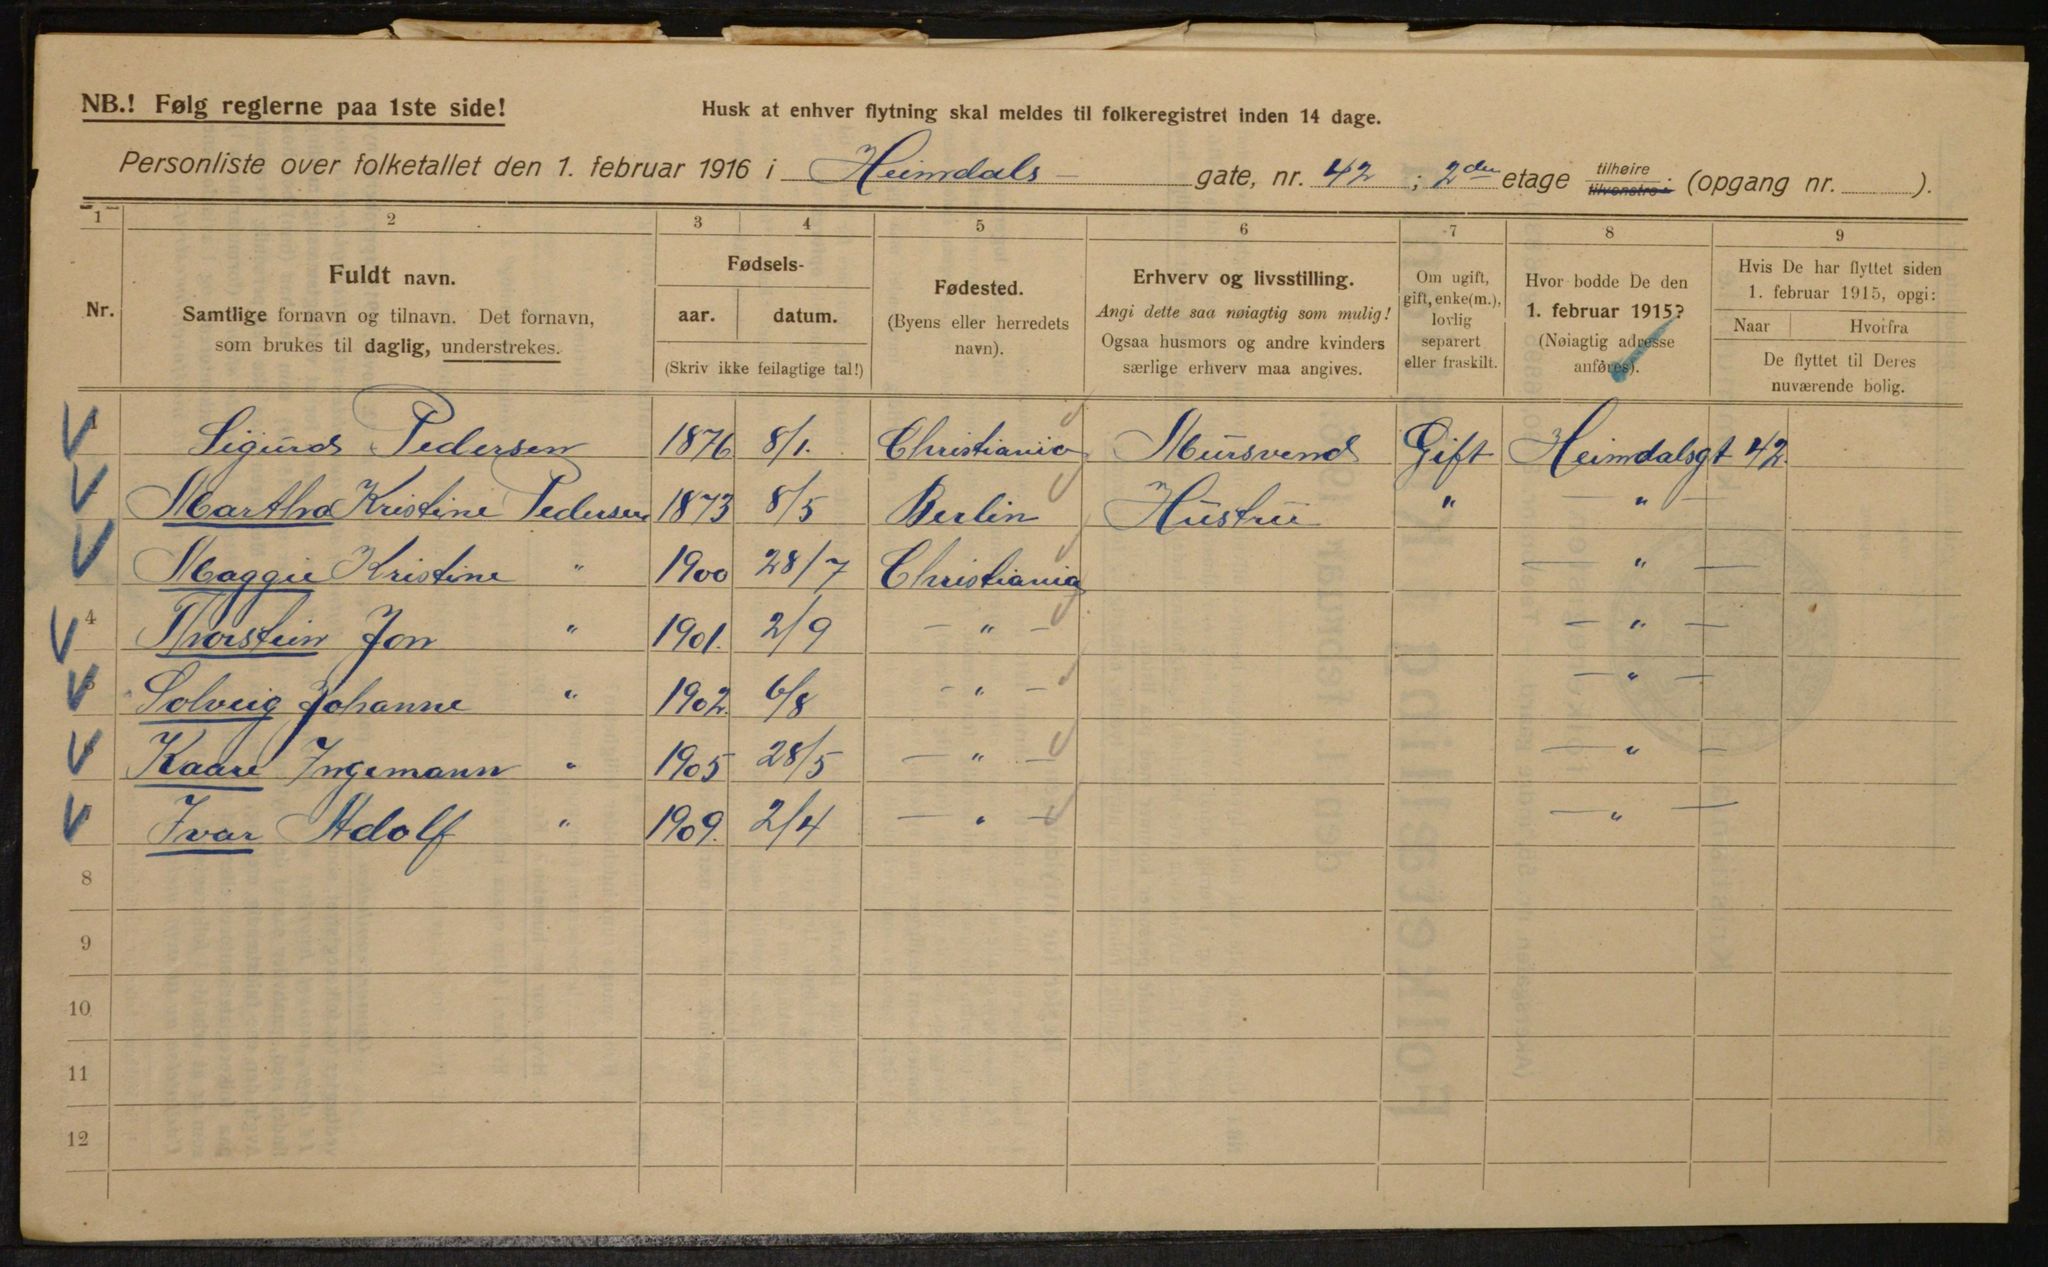 NB.! Følg reglerne paa 1ste side!
Husk at enhver flytning skal meldes til folkeregistret inden 14 dage.
Personliste over folketallet den 1. februar 1916 i Heimdals - gate, nr. 42; 2den etage tilhøire tilvenstre (opgang nr. ).
1 2 3 4 5 6 7 8 9
Nr.
Fuldt navn.
Samtlige fornavn og tilnavn. Det fornavn,
som brukes til daglig, understrekes.
Fødsels-
aar. datum.
(Skriv ikke feilagtige tal!)
Fødested.
(Byens eller herredets
navn).
Erhverv og livsstilling.
Angi dette saa nøiagtig som mulig!
Ogsaa husmors og andre kvinders
særlige erhverv maa angives.
Om ugift,
gift, enke(m.),
lovlig
separert
eller fraskilt.
Hvor bodde De den
1. februar 1915?
(Nøiagtig adresse
anføres).
Hvis De har flyttet siden
1. februar 1915, opgi:
Naar Hvorfra
De flyttet til Deres
nuværende bolig.
Sigurd Pedersen 1876 8/1. Christiania Mursvend Gift Heimdalsgt 42.
Martha Kristine Pedersen 1873 8/5 Berlin Hustru " — " —
Maggie Kristine " 1900 28/7 Christiania — " —
4 Thorstein Jon " 1901. 2/9 — " — — " —
5 Solveig Johanne " 1902. 6/8 — " — — " —
Kaare Ingemann " 1905 28/5 — " — — " —
Ivar Adolf " 1909. 2/4 — " — — " —
8
9
10
11
12